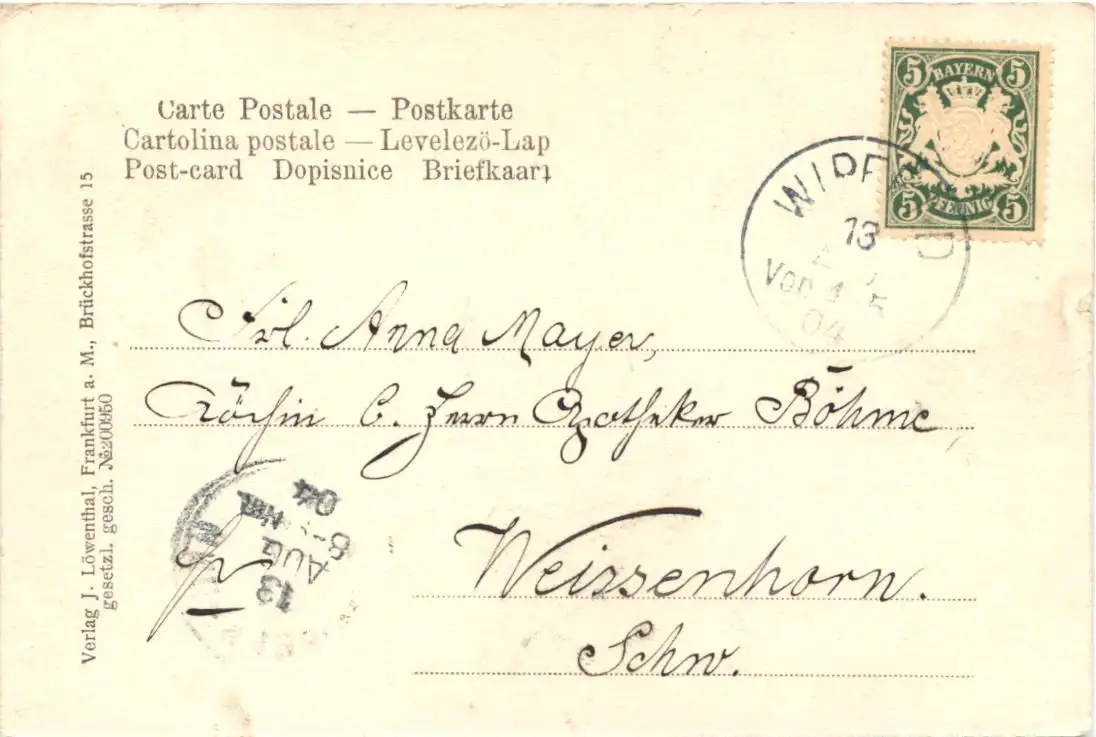 Carte Postale — Postkarte
Cartolina postale — Levelezö-Lap
Post-card Dopisnice Briefkaart
5 BAYERN 5
5 PFENNIG 5
13
Vor.
04
Frl. Anna Mayer,
Köchin b. Herrn Apotheker Böhme,
Weissenhorn.
Schw.
13
AUG
8-
04
Verlag J. Löwenthal, Frankfurt a. M., Brückhofstrasse 15
gesetzl. gesch. №200950